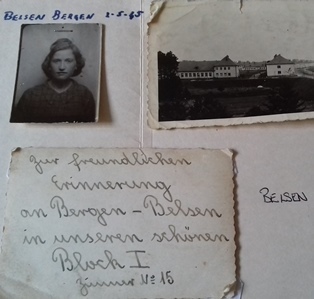 BELSEN BERGEN 2-5-45
zur freundlichen
Erinnerung
an Bergen-Belsen
in unseren schönen
Block I
Zimmer No 15
BELSEN